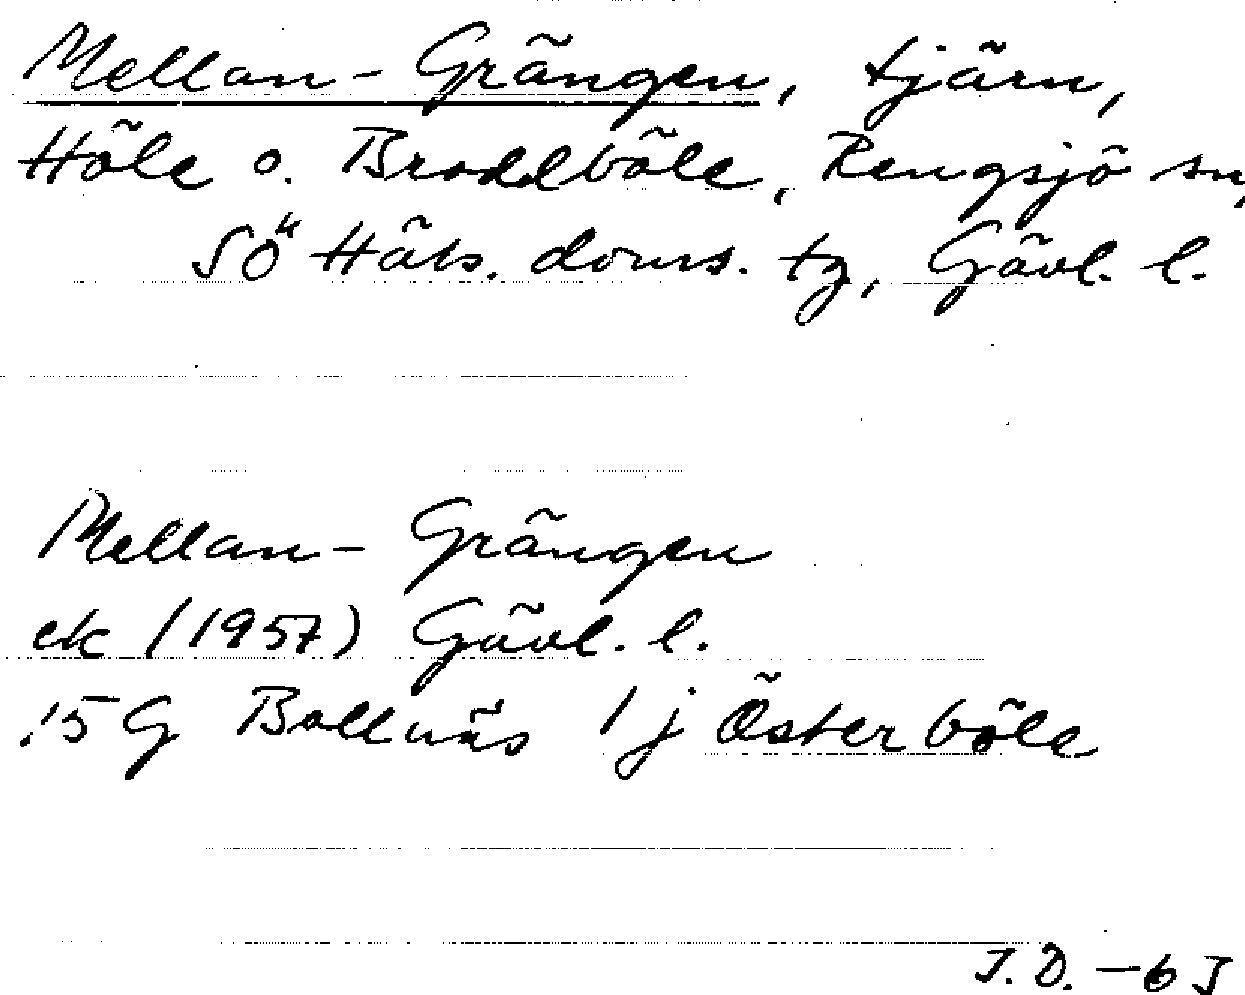 Mellan-Grängen, tjärn,
Höle o. Broddböle, Rengsjö sn,
SÖ Häls. doms. tg, Gävl. l.
Mellan-Grängen
ek (1957) Gävl. l.
15G Bollnäs 1j Österböle
J.D. -65